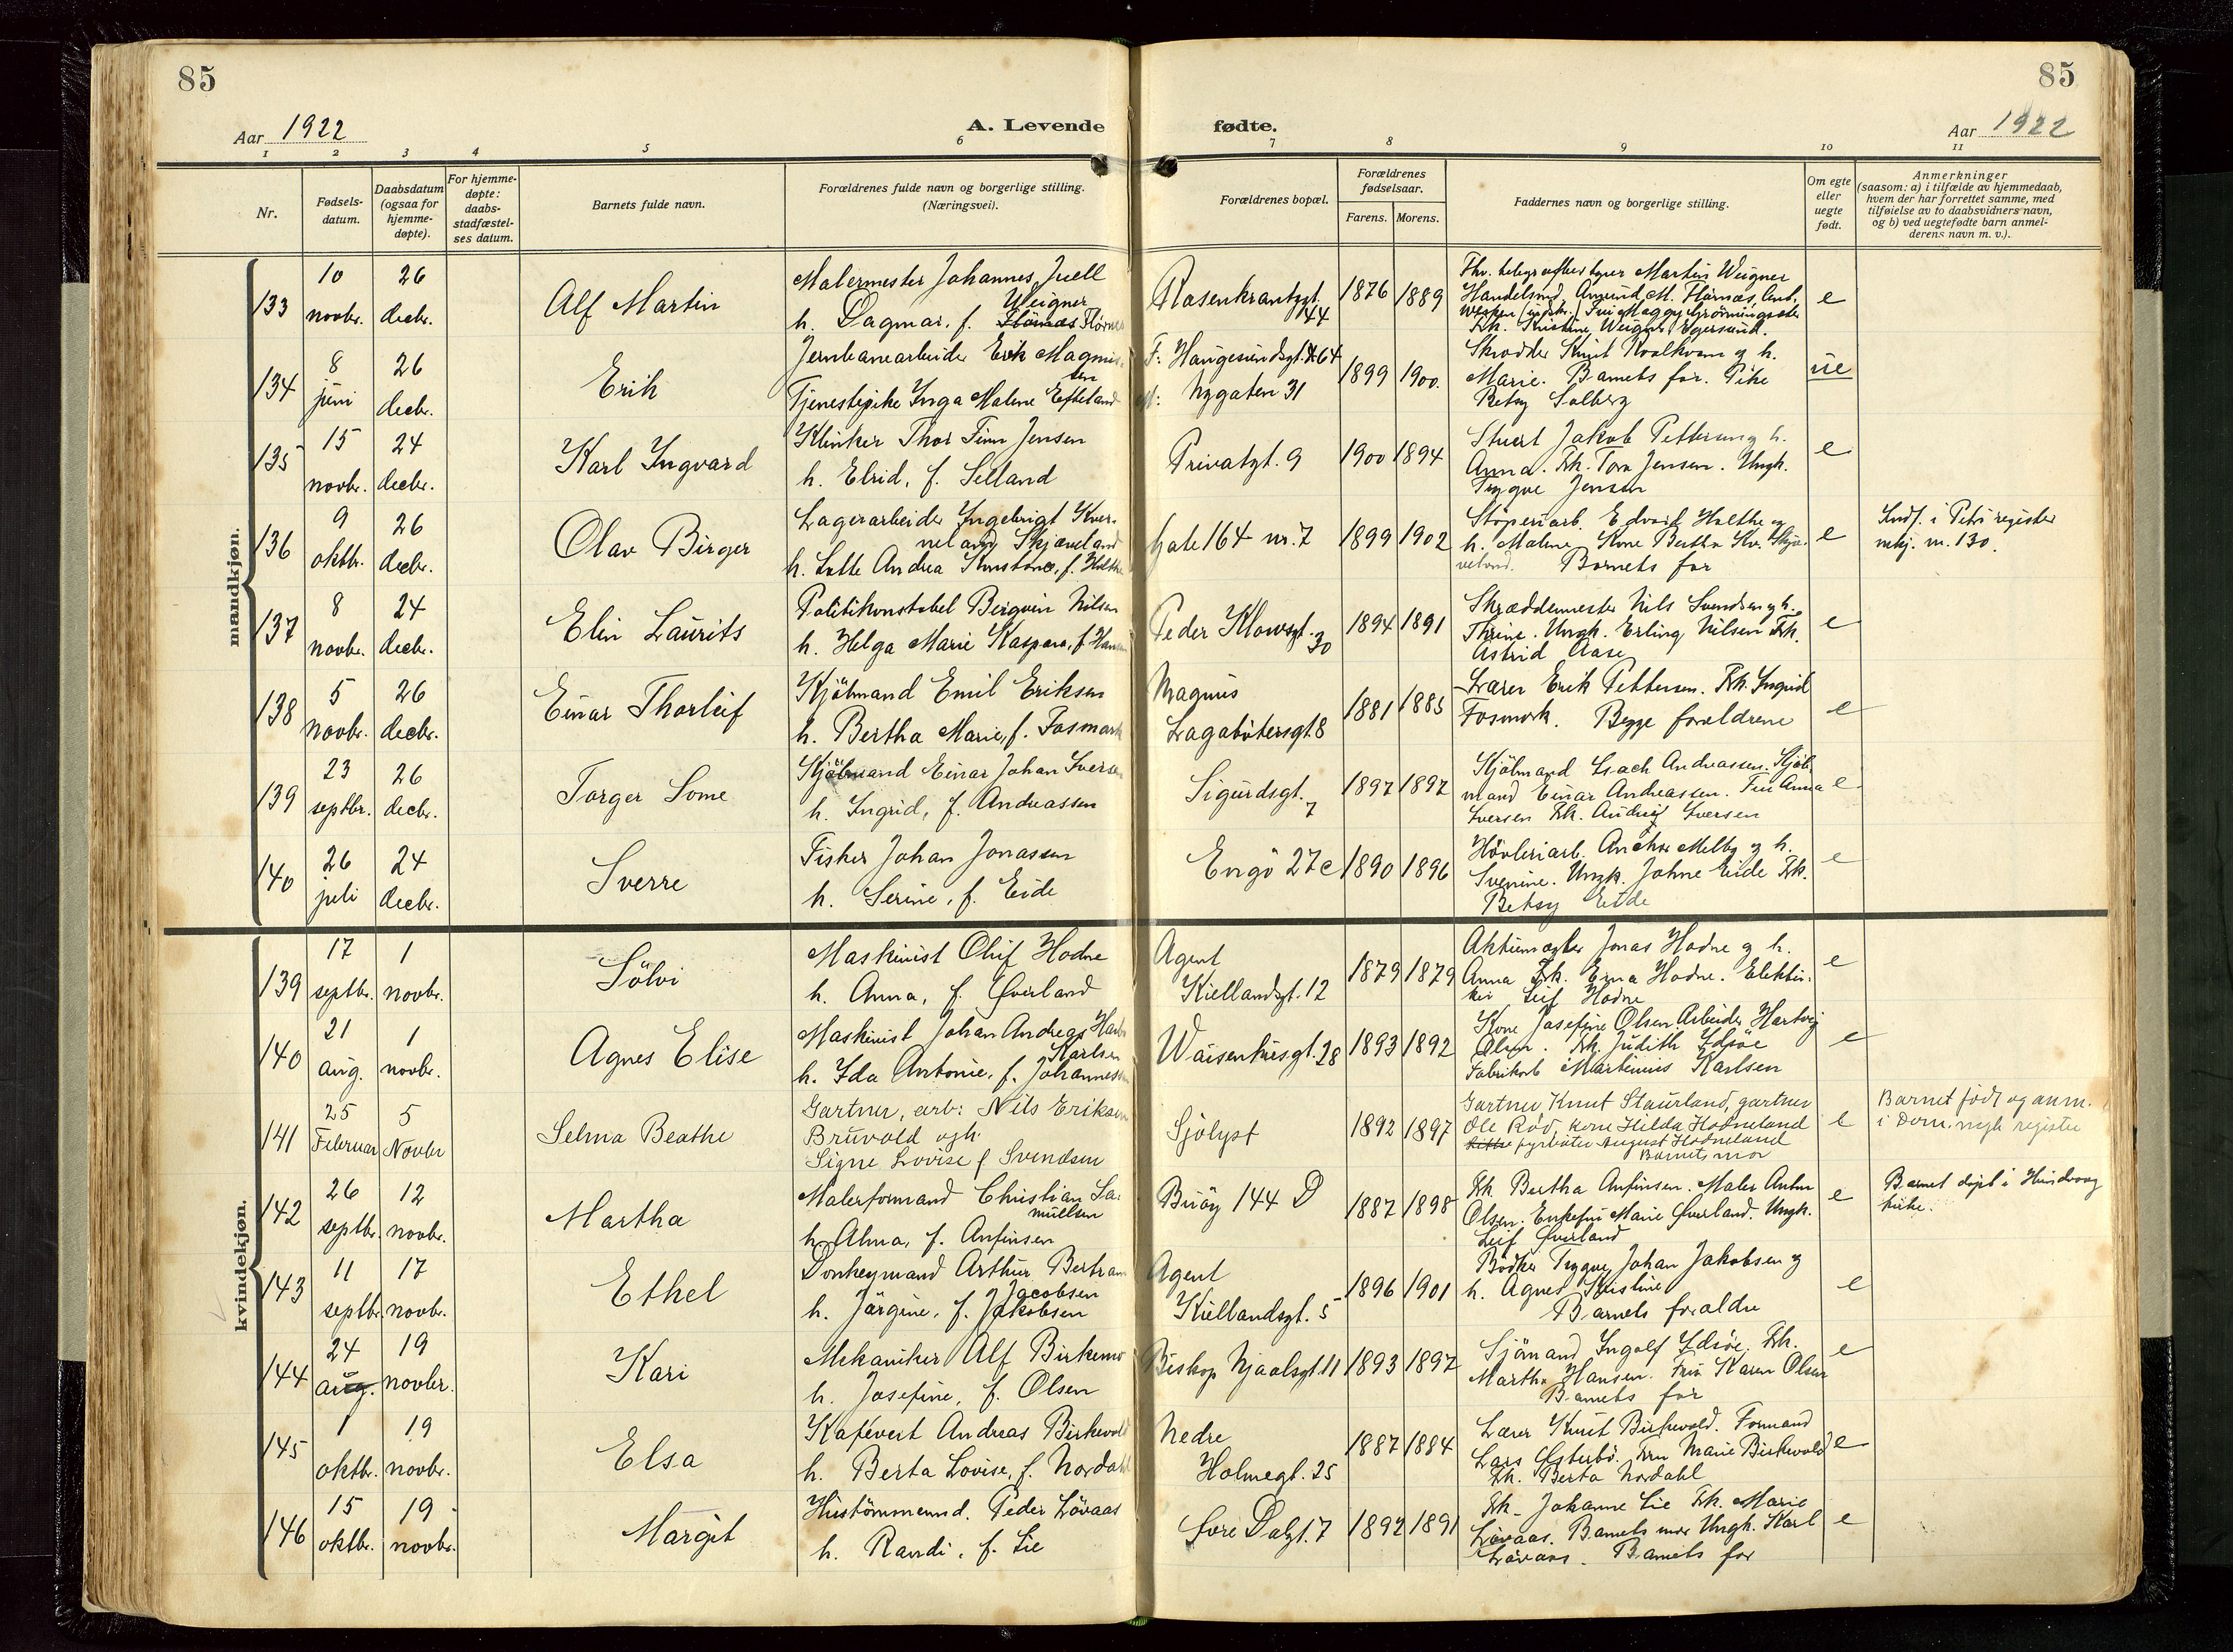 85
85
Aar 1922
A. Levende
fødte.
Aar 1922
1 2 3 4 5 6 7 8 9 10 11
Nr.
Fødsels-
datum.
Daabsdatum
(ogsaa for
hjemme-
døpte).
For hjemme-
døpte:
daabs-
stadfæstel-
ses datum.
Barnets fulde navn.
Forældrenes fulde navn og borgerlige stilling.
(Næringsvei).
Forældrenes bopæl.
Forældrenes
fødselsaar.
Farens. Morens.
Faddernes navn og borgerlige stilling.
Om egte
eller
uegte
født.
Anmerkninger
(saasom: a) i tilfælde av hjemmedaab,
hvem der har forrettet samme, med
tilføielse av to daabsvidners navn,
og b) ved uegtefødte barn anmel-
derens navn m. v.).
mandkjøn.
133
10
novbr.
26
decbr.
Alf Martin
Malermester Johannes Juell
Weigner
h. Dagmar, f. Flörnæs
Rosenkrantzgt.
44
1876 1889
Fhv. telegrafbestyrer Martin Weigner
e
134
8
juni
26
decbr.
Erik
Jernbanearbeider Erik Magnus-
sen
Tjenestepike Inga Malene Efteland
F: Haugesundsgt. 64
M: Nygaten 31
1899 1900.
Skrædder Knut Koalkvam og h.
Marie. Barnets far. Pike
Betsy Solberg
ue
135
15
novbr.
24
decbr.
Karl Ingvard
Klinker Thor Finn Jensen
h. Elrid, f. Selland
Privatgt. 9
1900 1894
Stuert Jakob Pettersen og h.
Anna. Frk. Tora Jensen. Ungk.
Trygve Jensen
e
136
9
oktbr.
26
decbr.
Olav Birger
Lagerarbeider Ingebrigt Kver-
neland Skjæveland
h. Lotte Andrea Konstance, f. Holthe
Gate 164 nr. 7
1899 1902
Stöperiarb. Edvard Holthe og
h. Malene. Kone Bertha Kv. Skjæ-
veland. Barnets far
e
Indf. i Petri register
mkj. nr. 130.
137
8
novbr.
24
decbr.
Elin Laurits
Politikonstabel Bergvin Nilsen
h. Helga Marie Kaspara, f. Hansen
Peder Klowsgt.
30
1894 1891
Skræddermester Nils Svendsen og h.
Thrine. Ungk. Erling Nilsen Frk.
Astrid Aase
e
138
5
novbr.
26
decbr.
Einar Thorleif
Kjölmand Emil Eriksen
h. Bertha Marie, f. Fosmark
Magnus
Lagabötersgt. 8
1881 1885
Lærer Erik Pettersen. Frk. Ingrid
Fosmork. Begge forældrene
e
139
23
septbr.
26
decbr.
Torger Lome
Kjölmand Einar Johan Iversen
h. Ingrid, f. Andreassen
Sigurdsgt.
7
1897 1897
Kjölmand Isach Andreassen. Kjöl-
mand Einar Andreassen. Fru Anna
Iversen Frk. Audny Iversen
e
140
26
juli
24
decbr.
Sverre
Fisker Johan Jonassen
h. Serine, f. Eide
Engö 27c
1890 1896
Hövleriarb. Anchor Melby og h.
Svenine. Ungk. Johne Eide Frk.
Betsy Eide
e
kvindekjøn.
139
17
septbr.
1
novbr.
Sölvi
Maskinist Oluf Hodne
h. Anna, f. Øverland
Agent
Kiellandsgt. 12
1879 1879
Aktiemægler Jonas Hodne og h.
Anna Frk. Erna Hodne. Elektri-
ker Leif Hodne
e
140
21
aug.
1
novbr.
Agnes Elise
Maskinist Johan Andreas
Karlsen
h. Ida Antonie, f. Johannessen
Waisenhusgt. 28
1893 1892
Kone Josefine Olsen. Arbeider Hartvig
Olsen. Frk Judith Idsøe
Fabrikarb Martinius Karlsen
e
141
25
Februar
5
Novbr
Selma Beathe
Gartner, arb: Nils Eriksen
Bruvold ogh.
Signe Lovise f Svendsen
Sjölyst
1892 1897
Gartner Knut Staurland, gartner
Ole Röd, kone Hilda Hodneland
fyrböter August Hodneland
Barnets mor
e
Barnet födt og anm.
i Dom. mgh register
142
26
septbr.
12
novbr.
Martha
Malerformand Christian Sa-
muelsen
h. Alma, f. Anfinsen
Buöy 144 D
1887 1898
Frk Bertha Anfinsen. Maler Anton
Olsen. Enkefru Marie Øverland. Ungk.
Leif Øverland
e
Barnet döpt i Hundvaag
kirke.
143
11
septbr.
17
novbr.
Ethel
Donkeymand Arthur Bertram
Jacobsen
h. Jörgine, f. Jakobsen
Agent
Kiellandsgt. 5
1896 1901
Bödker Trygve Johan Jakobsen og
h. Agnes Kristine
Barnets forældre
e
144
24
aug.
19
novbr.
Kari
Mekaniker Alf Birkemo
h. Josefine, f. Olsen
Biskop Njaalsgt. 11
1893 1897
Sjömand Ingolf Idsöe. Frk.
Martha Hansen. Fru Karen Olsen
Barnets far
e
145
1
oktbr.
19
novbr.
Elsa
Kafévert Andreas Birkevold
h. Berta Lovise, f. Nordahl
Nedre
Holmegt. 25
1887 1884
Lærer Knut Birkevold. Formand
Lars Østerbö. Fru Marie Birkevold
Frk. Berta Nordahl
e
146
15
oktbr.
19
novbr.
Margit
Hustömmermd. Peder Lövaas
h. Randi, f. Lie
Øvre Dalgt. 7
1892 1891
Frk. Johanne Lie Frk. Marie
Lövaas. Barnets mor Ungk. Karl
Lövaas. Barnets far
e